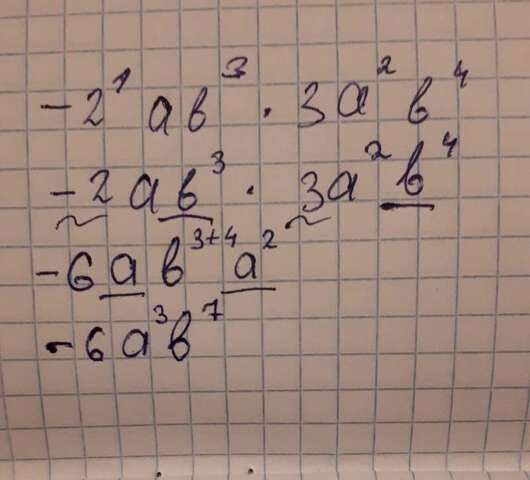 -2¹ab³ · 3a²b⁴
-2ab³ · 3a²b⁴
-6ab³⁺⁴a²
-6a³b⁷